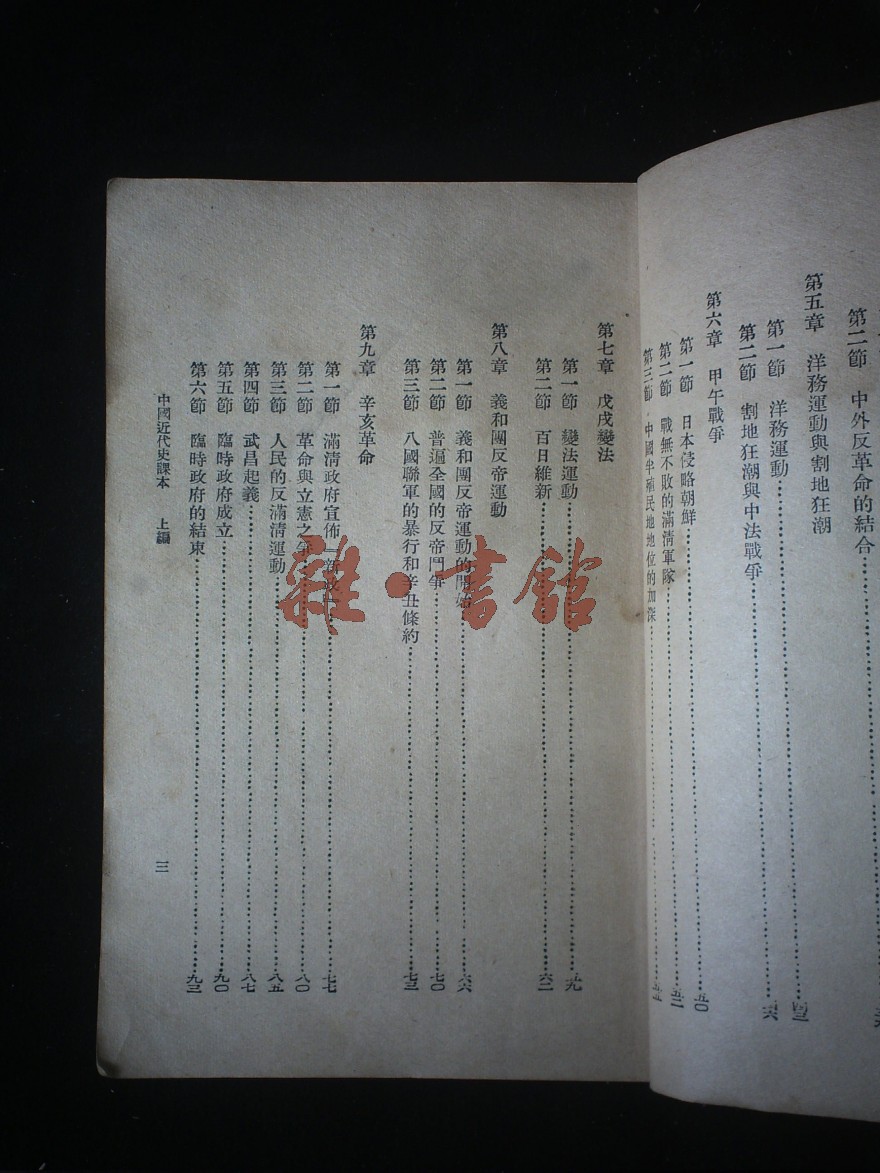 第二節 中外反革命的結合
第五章 洋務運動與割地狂潮
第一節 洋務運動 四三
第二節 割地狂潮與中法戰爭 四六
第六章 甲午戰爭
第一節 日本侵略朝鮮 五〇
第二節 戰無不敗的滿清軍隊 五二
第三節 中國半殖民地地位的加深
第七章 戊戌變法
第一節 變法運動 五九
第二節 百日維新 六二
第八章 義和團反帝運動
第一節 義和團反帝運動的開始 六六
第二節 普遍全國的反帝鬥爭 七〇
第三節 八國聯軍的暴行和辛丑條約 七三
第九章 辛亥革命
第一節 滿清政府宣佈「新政」 七七
第二節 革命與立憲之爭 八〇
第三節 人民的反滿清運動 八五
第四節 武昌起義 八七
第五節 臨時政府成立 九〇
第六節 臨時政府的結束 九三
中國近代史課本 上編 三
雜·書館